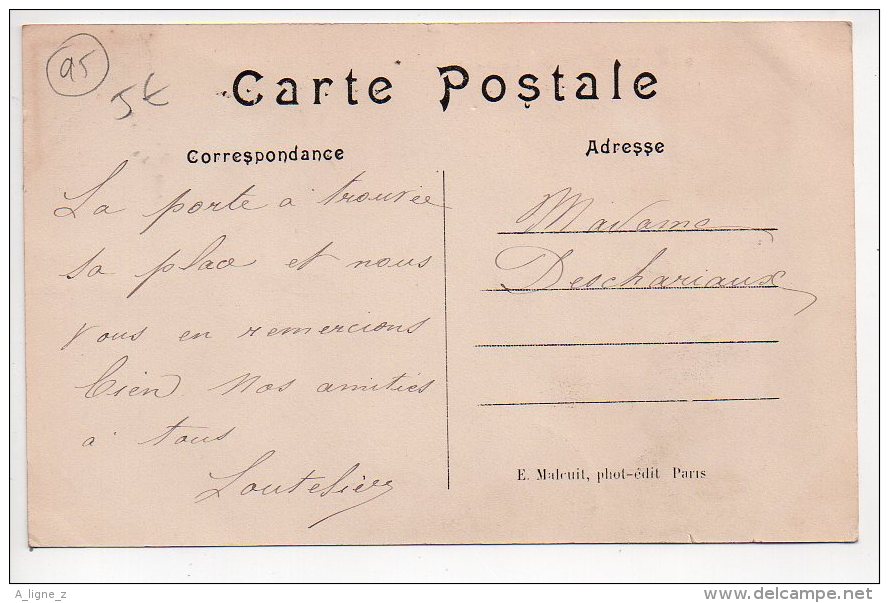 95
5€
Carte Postale
Correspondance
La porte a trouvée
sa place et nous
vous en remercions
bien Nos amitiés
à tous
Loutelier
Adresse
Madame
Deschariaux
E. Malcuit, phot-édit Paris
A_ligne_z
delcampe.net